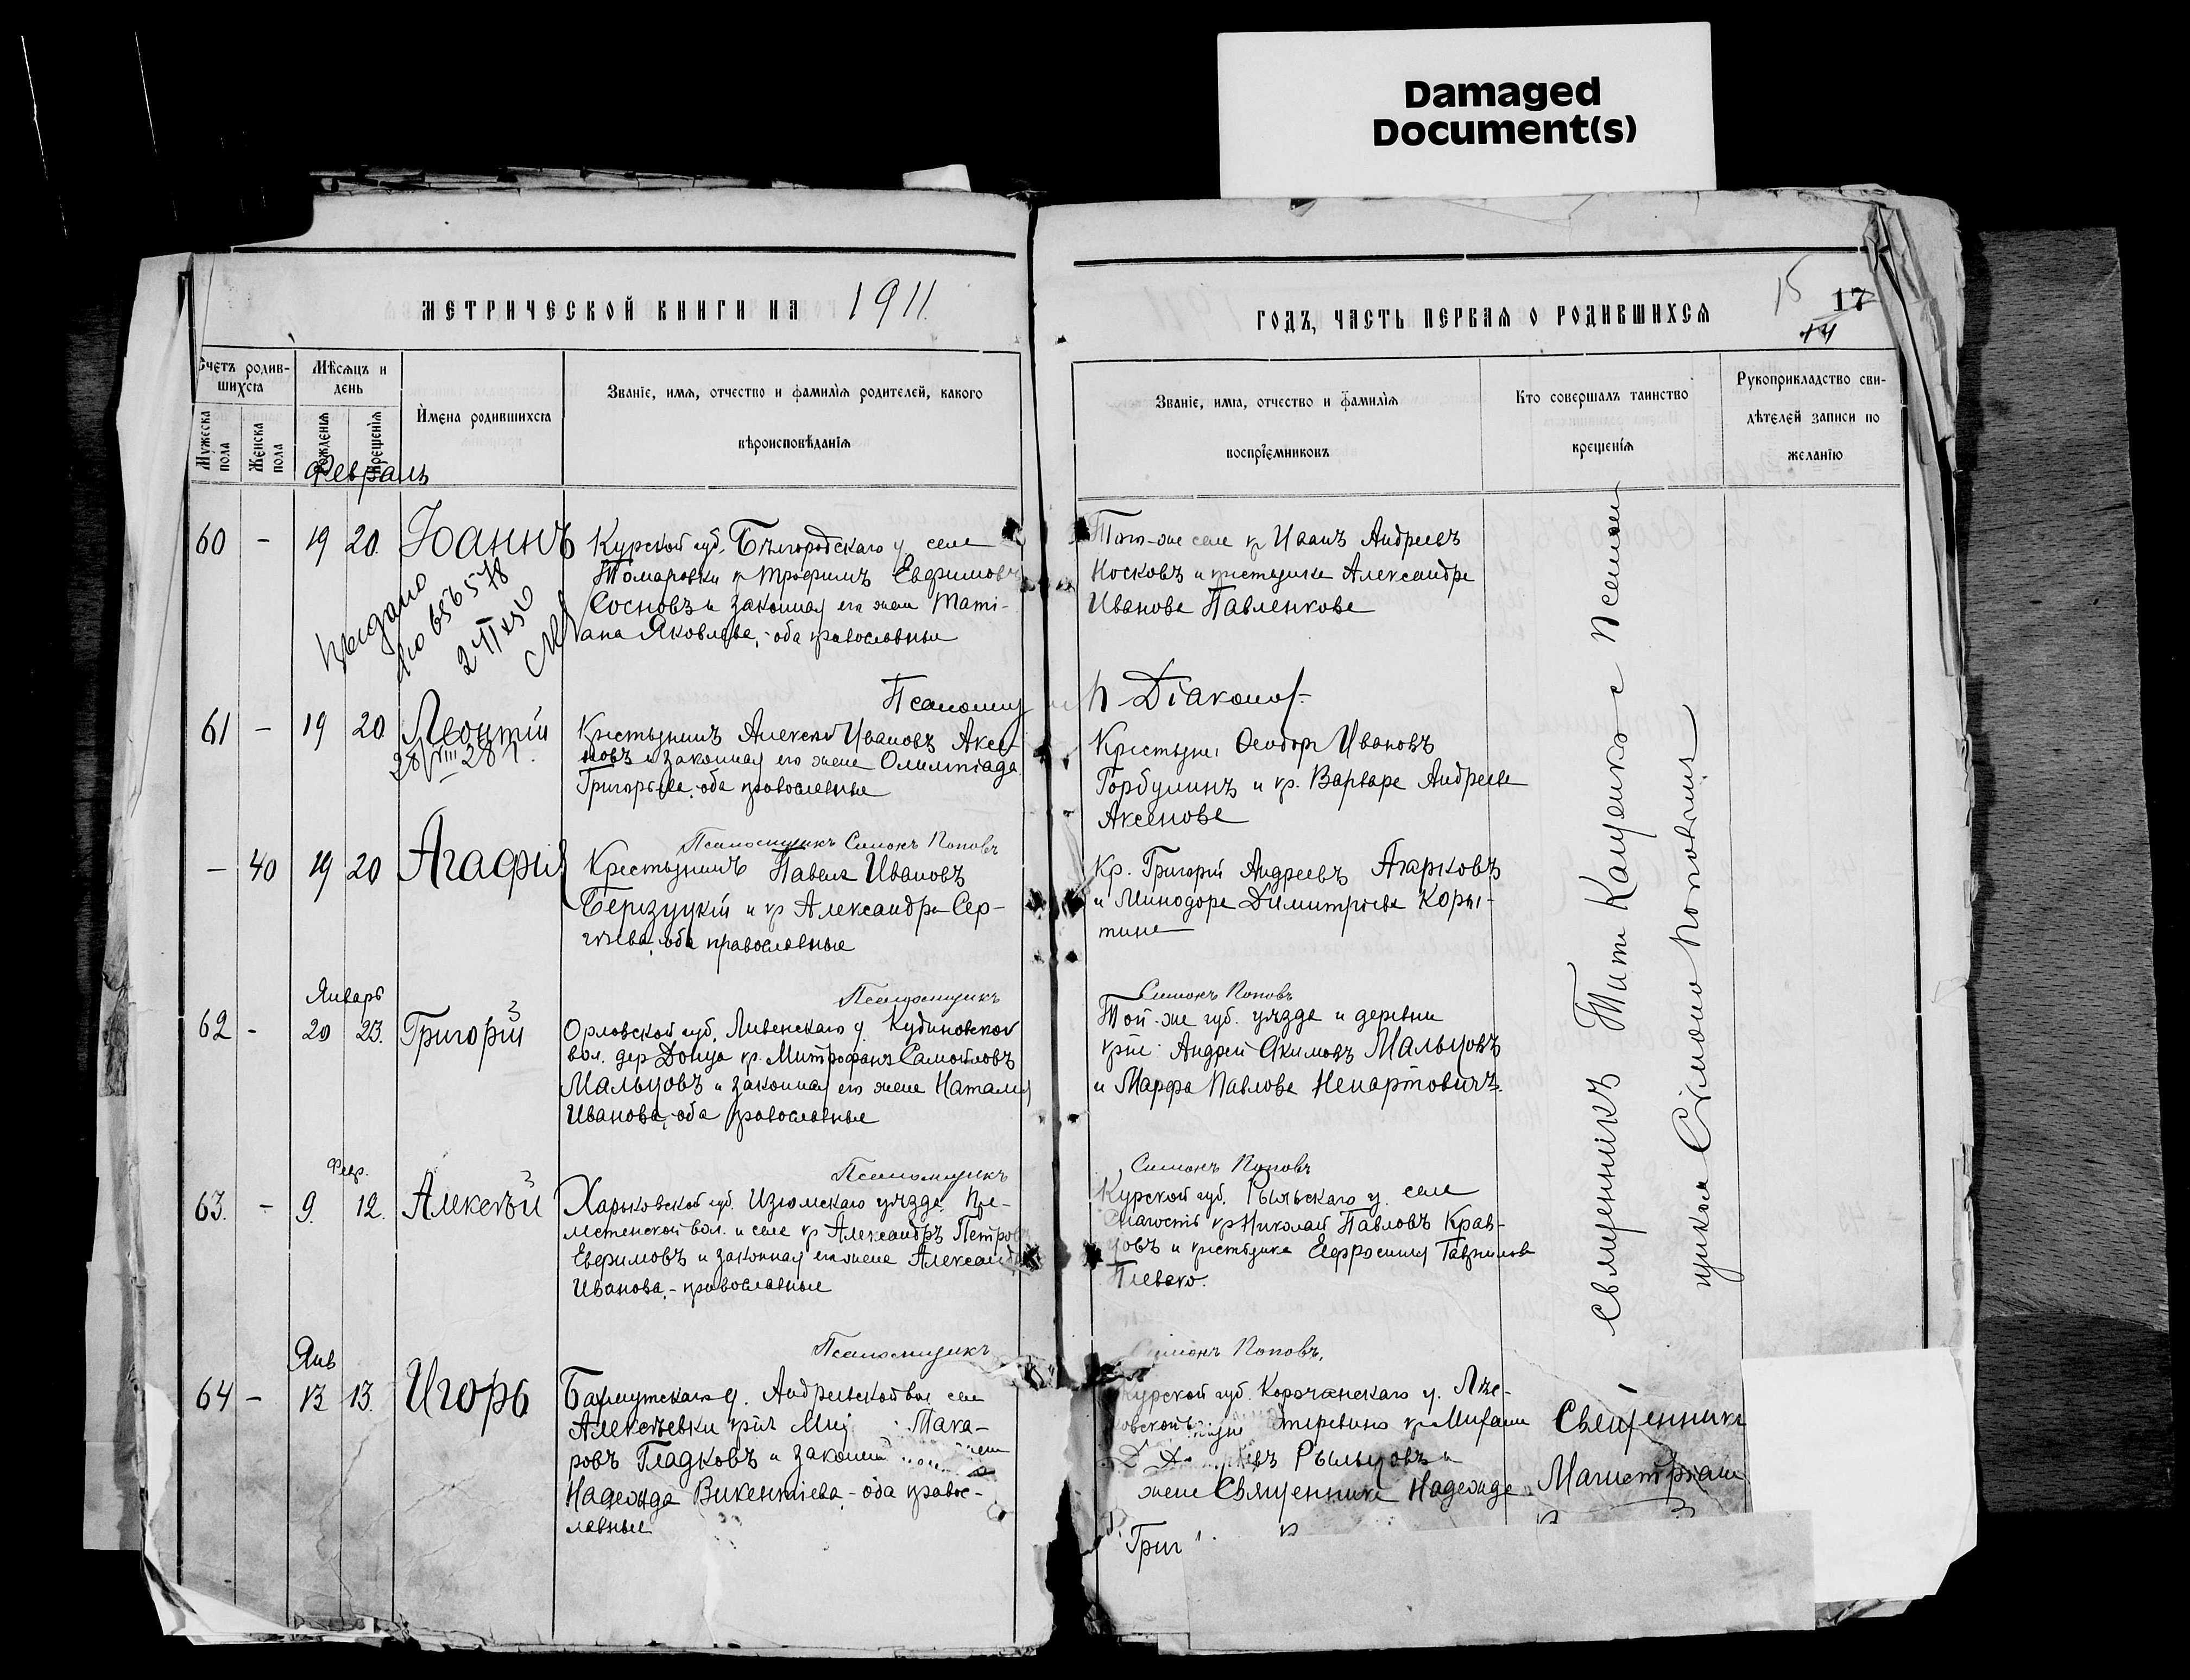 Damaged
Document(s)
МЕТРИЧЕСКОЙ КНИГИ НА 1911
Счетъ родив-
шихся
Мѣсяцъ и
день
Имена родившихся
Званіе, имя, отчество и фамилія родителей, какого
вѣроисповѣданія
Мужеска
пола
Женска
пола
рожденія
крещенія
Февраль
60 - 19 20. Іоаннъ
Выдано
2/II
Курской губ. Бѣлгородскаго у. села
Томаровки кр Трофимъ Евфимовъ
Сосновъ и законная его жена Тати-
ана Яковлева,-оба православные
Псаломщ
61 - 19 20 Леонтій
28/VIII 28 г.
Крестьянинъ Алексѣй Ивановъ Аксе-
новъ и законная его жена Олимпіада
Григорьева, оба православные
Псаломщикъ Симонъ Поповъ
- 40 19 20 Агафія
Крестьянинъ Павелъ Ивановъ
и кр Александра Сер-
гѣева, оба православные
Псаломщикъ
Январь
62 - 20 23. Григорій
Орловской губ. Ливенскаго у. Кудиновской
вол. дер Донца кр. Митрофанъ Самойловъ
Мальцовъ и законная его жена Наталія
Иванова, оба православные
Псаломщикъ
Февр.
63. - 9. 12. Алексѣй
Харьковской губ. Изюмскаго уѣзда
вол. и села кр Александръ Петров
Евфимовъ и законная его жена Александ
Иванова,-православные
Псаломщикъ
Янв
64 - 12 13. Игорь
Бахмутскаго у. Андреевской вол села
Алексѣевки Мака-
ровъ Гладковъ и законн
Надежда Викентіева,-оба правос-
лавные
ГОДЪ, ЧАСТЬ ПЕРВАЯ О РОДИВШИХСЯ
15
17
14
Званіе, имя, отчество и фамилія
воспріемниковъ
Кто совершалъ таинство
крещенія
Рукоприкладство сви-
дѣтелей записи по
желанію
Того-же села кр Иванъ Андреевъ
Носковъ и крестьянка Александра
Иванова Павленкова
Діаконъ
Ѳеодоръ Ивановъ
Горбулинъ и кр. Варвара Андреева
Аксенова
Кр. Григорій Андреевъ Агарковъ
и Минодора Димитріева Коры-
тина
Симонъ Поповъ
Той-же губ. уѣзда и деревни
Андрей Акимовъ Мальцовъ
и Марфа Павлова
Симонъ Поповъ
Курской губ. Рыльскаго у. села
Снагость кр Николай Павловъ Крав-
цовъ и крестьянка Евфросинія Гаврилова
Плевако.
Симонъ Поповъ.
Курской губ. Корочанскаго у.
Рыльцовъ и
жена Священника Надежда
Григ
Священникъ Титъ Кащенко с Псалом
щикомъ Сімономъ Поповымъ
Священникъ